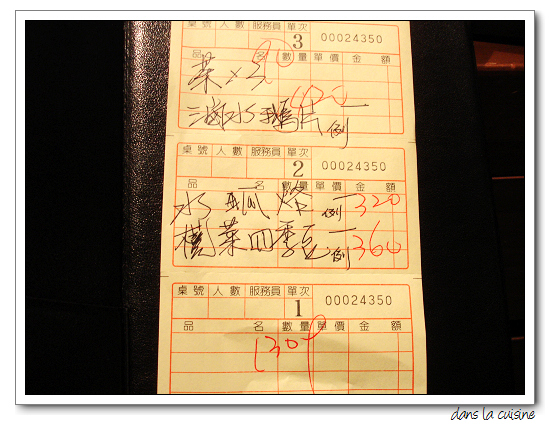 桌號 人數 服務員 單次
3 00024350
品名 數量 單價 金額
茶 x 3
滷水鵝片 一例
桌號 人數 服務員 單次
2 00024350
品名 數量 單價 金額
水 一例 320
欖菜四季豆 一例 360
桌號 人數 服務員 單次
1 00024350
品名 數量 單價 金額
dans la cuisine